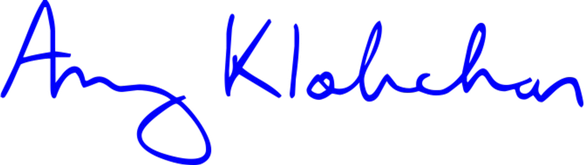 Amy Klobuchar